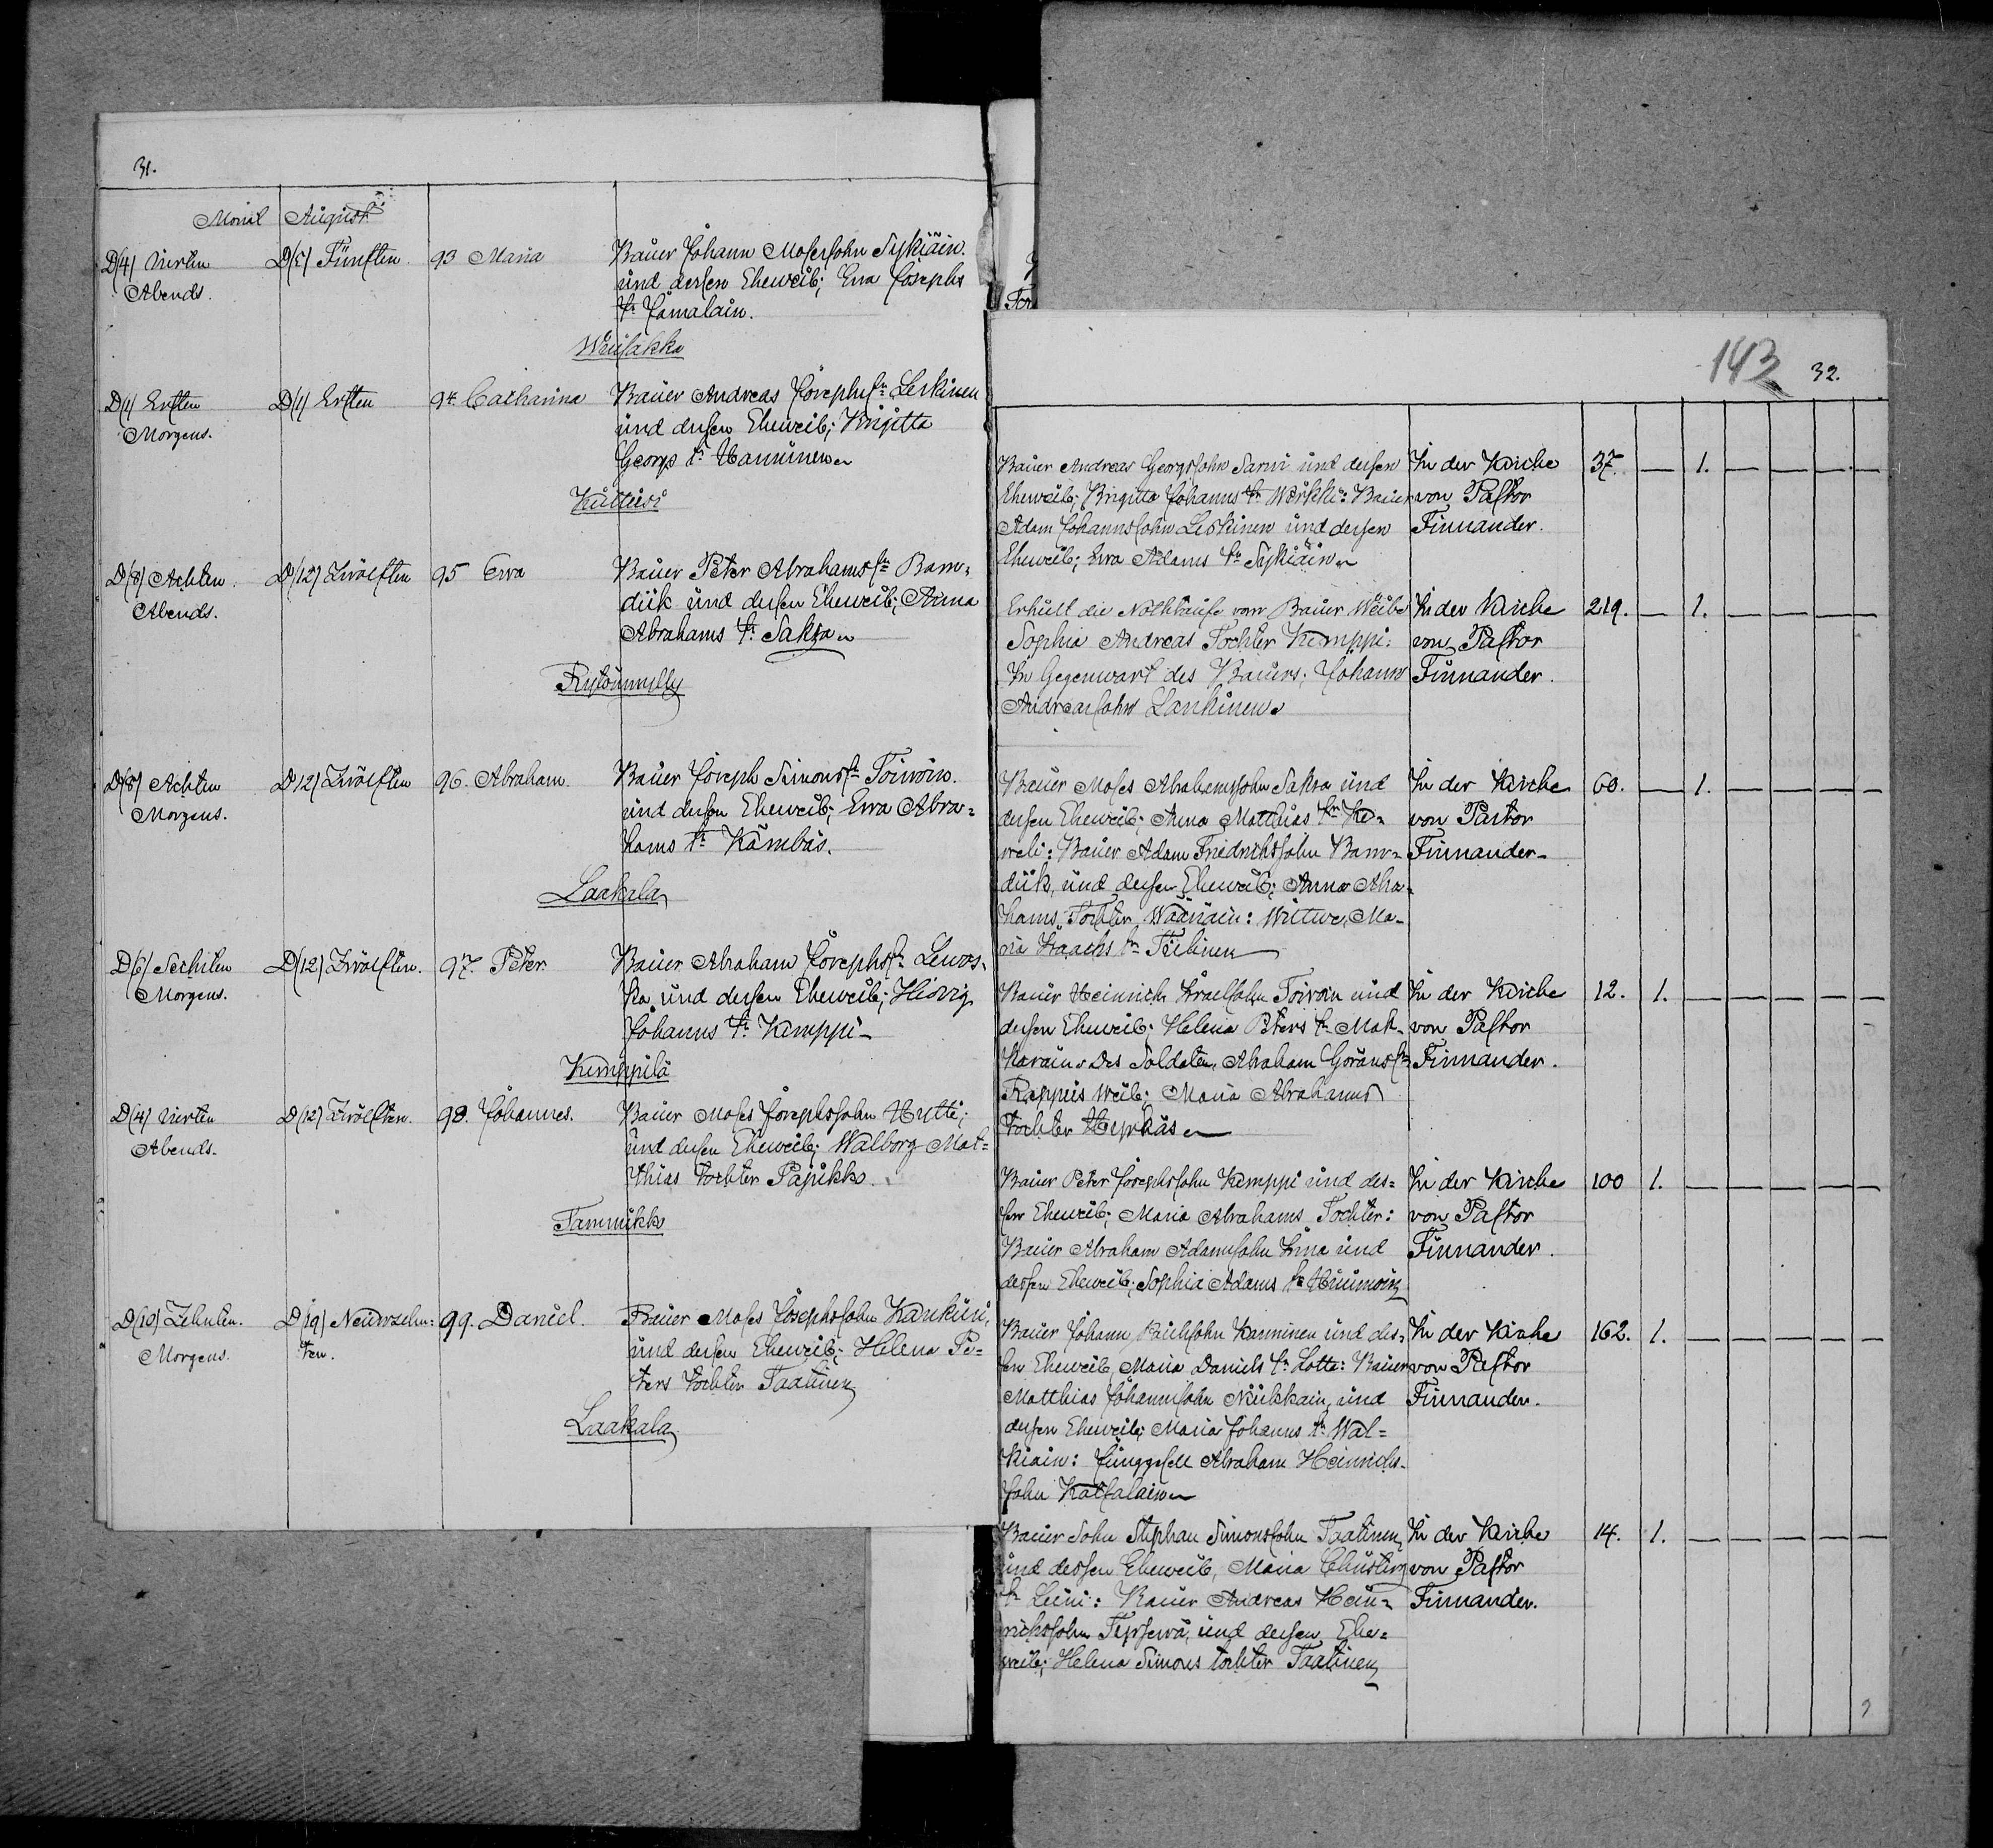 31.
Monat August
D(4) Vierten
Abends.
D(5) Fünften.
93 Maria
Bauer Johann Mosessohn Sykiäin.
und dessen Eheweib; Eva Josephs
tr. Jämalain.
D(1) Ersten
Morgens.
D(1) Ersten
94. Catharina
Bauer Andreas Josephs sn. Leskinen
und dessen Eheweib; Brigitta
Georgs tr. Hanninen
D(8) Achten.
Abends.
D(12) Zwölften
95 Ewa
Bauer Peter Abrahams sn.
und dessen Eheweib; Anna
Abrahams tr. Saksa
D(8) Achten
Morgens.
D(12) Zwölften
96. Abraham.
Bauer Joseph Simons sn. Toiwoin.
und dessen Eheweib; Ewa Abra=
hams tr. Kämbäs.
Laakala
D(6) Sechsten
Morgens.
D(12) Zwölften.
97. Peter.
Bauer Abraham Josephs sn.
und dessen Eheweib; Hedvig
Johanns tr. Kemppi
Kemppilä
D(4) Vierten
Abends.
D(12) Zwölften.
98. Johannes.
Bauer Moses Josephssohn Hytti;
und dessen Eheweib; Walborg Mat=
thias tochter Papikko.
Tammikko
D(10) Zehnten.
Morgens.
D(19) Neunzehn=
ten.
99. Daniel.
Bauer Moses Josephssohn
und dessen Eheweib; Helena Pe=
ters tochter Taatinen
Laakala
143
32.
Bauer Andreas Georgssohn Sarwi und dessen
Eheweib; Brigitta Johanns tr. Bauer
Adam Johannssohn Leskinen und dessen
Eheweib; Ewa Adams tr. Sykiäin
In der Kirche
von Pastor
Finnander.
37. — 1. — — — —
Erhielt die Nothtaufe vom Bauer Weibe
Sophia Andreas Tochter Kemppi:
In Gegenwart des Bauers; Johann
Andreassohn Lankinen.
In der Kirche
von Pastor
Finnander.
219. — 1. — — — —
Bauer Moses Abrahamssohn Saksa und
dessen Eheweib; Anna Matthias tr.
Bauer Adam Friedrichssohn
und dessen Eheweib; Anna Abra=
hams Tochter Wäänäin: Wittwe, Ma=
ria Isaachs tr.
In der Kirche
von Pastor
Finnander
60. — 1. — — — —
Bauer Heinrich Israelsohn Toiwoin und
dessen Eheweib; Helena Peters tr. Mak=
karain. Des Soldaten, Abraham Görans sn.
Weib; Maria Abrahams
tochter
In der Kirche
von Pastor
Finnander.
12. 1. — — — — —
Bauer Peter Josephssohn Kemppi und des=
sen Eheweib; Maria Abrahams Tochter:
Bauer Abraham Adamssohn und
dessen Eheweib; Sophia Adams tr.
In der Kirche
von Pastor
Finnander.
100 1. — — — — —
Bauer Johann Kanninen und des=
sen Eheweib, Maria Daniels tr. Lotta: Bauer
Matthias Johannssohn und
dessen Eheweib; Maria Johanns tr. Wal=
kiain: Junggesell Abraham Heinrichs=
sohn
In der Kirche
von Pastor
Finnander.
162. 1. — — — — —
Bauer Sohn Stephan Simonssohn Taatinen
und dessen Eheweib, Maria
tr. Bauer Andreas Hein=
richssohn und dessen Ehe=
weib; Helena Simons tochter Taatinen
In der Kirche
von Pastor
Finnander.
14. 1. — — — — —